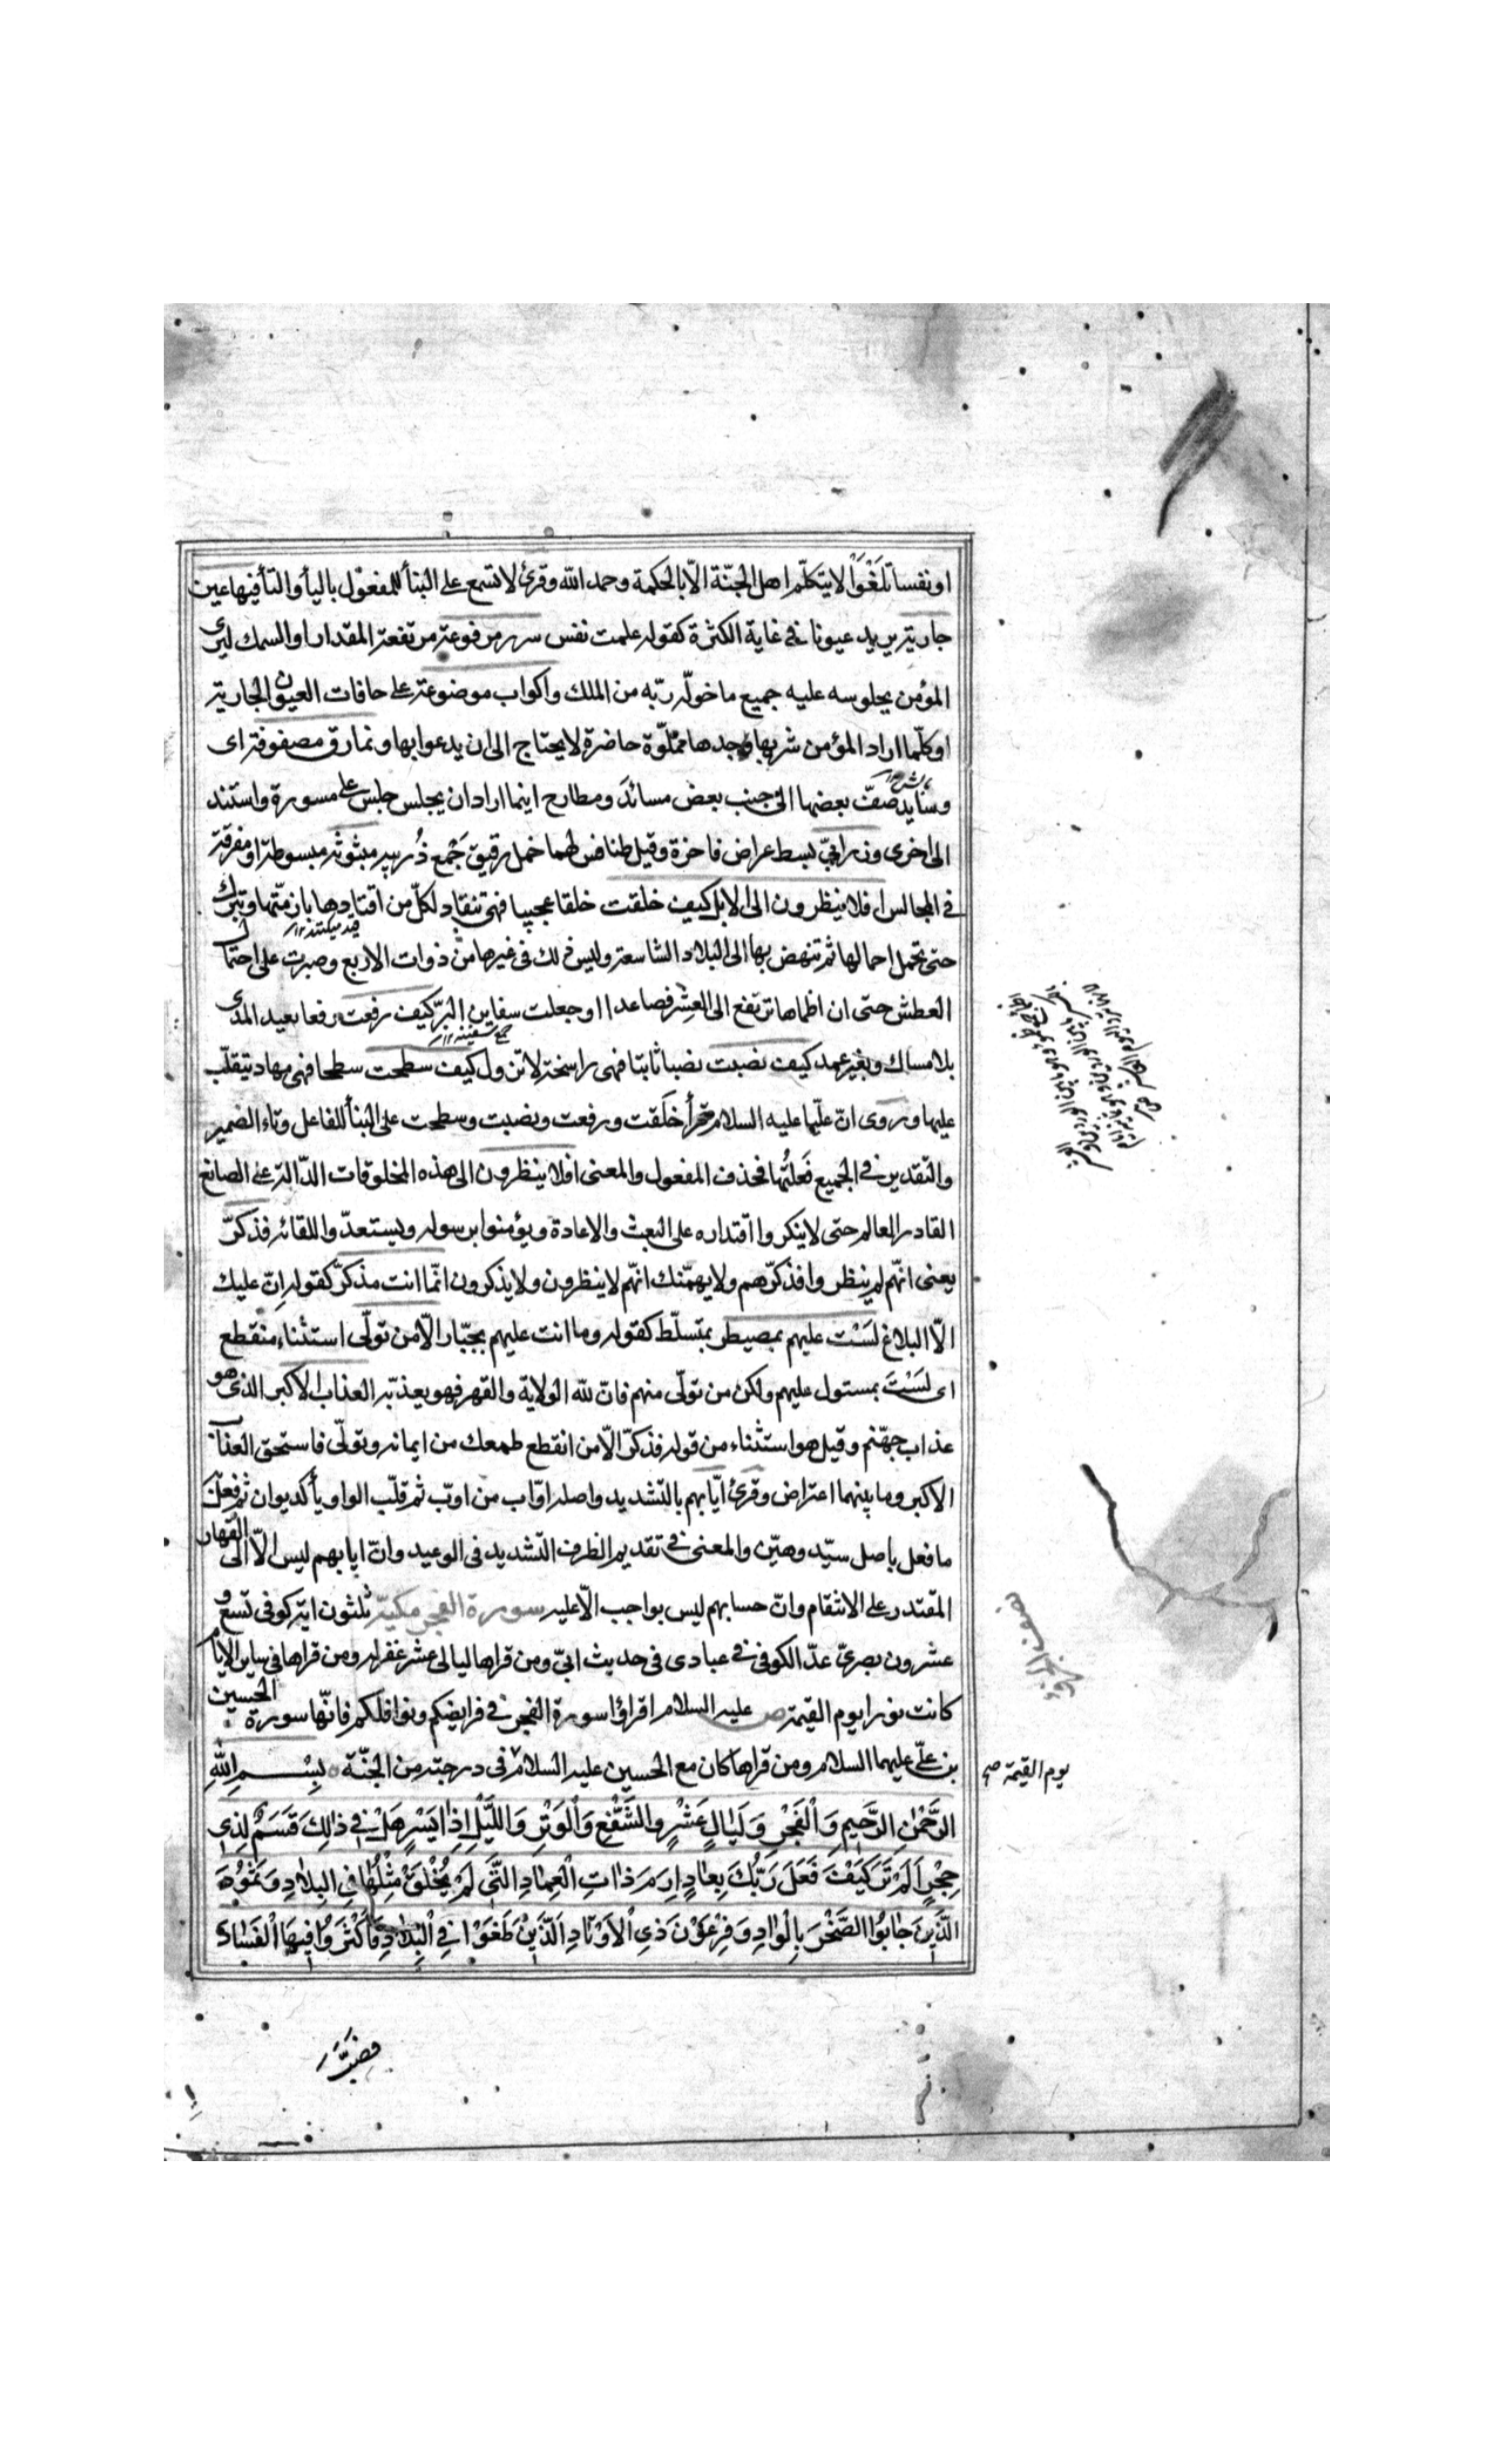 او نفسا تَلغَوْا لا يتكلّم اهل الجنّة الّا بالحكمة وحمد اللّه وقرئ لا تسمع على البنأ للمفعول باليأ والتأ فيها عين
جارية يريد عيونا فى غاية الكثرة كقوله علمت نفس سرر مرفوعة مرتفعة المقدار او السمك ليرى
المؤمن بجلوسه عليه جميع ما خوّله ربّه من الملك واكواب موضوعة على حافات العيون الجارية
او كلّما اراد المؤمن شربها وجدها مملوّة حاضرة لا يحتاج الى ان يدعوا بها ونمارق مصفوفة اى
وسايد صفّ بعضها الى جنب بعض مساند ومطارح اينما اراد ان يجلس جلس على مسورة واستند
الى اخرى وزرابىّ بسط عراض فاخرة وقيل طنافس لهما خمل رقيق جَمع ذُربيه مبثوثة مبسوطة او مفرقة
فى المجالس افلا ينظرون الى الابل كيف خلقت خلقا عجيبا فهى تنقاد لكلّ من اقتادها بازمّتها وتبرك
حتى تحمل احمالها ثم تنهض بها الى البلاد الشاسعة وليس ذلك فى غيرها من ذوات الاربع وصبرت على احتما
العطش حتى ان اظماها ترتفع الى العِشر فصاعدا او جعلت سفاين البرّ كيف رفعت رفعا بعيد المدى
جمع سفينة ١٢
بلا مساك وبغير عمد كيف نصبت نصبا ثابتا فهى راسخة لا تزول كيف سطحت سطحا فهى مهاد يتقلّب
عليها وروى انّ عليّا عليه السلام قرأ خلَقت ورفعت ونصبت وسطحت على البنأ للفاعل وتاء الضمير
والتقدير فى الجميع فَعلتُها فحذف المفعول والمعنى افلا ينظرون الى هذه المخلوقات الدّالة على الصانع
القادر العالم حتى لا ينكروا اقتداره على البعث والاعادة ويؤمنوا برسوله ويستعدّوا للقائه فذكرّ
يعنى انّهم لم ينظروا فذكرّهم ولا يهمّنك انّهم لا ينظرون ولا يذكرون انّما انت مذكرّ كقوله اِن عليك
الّا البلاغ لَسْت عليهم بمصيطر بمتسلّط كقوله وما انت عليهم بجبّار الّا من تولّى استثناء منقطع
اى لَسْتَ بمستول عليهم ولكن من تولّى منهم فانّ للّه الولاية والقهر فهو يعذبّه العذاب الاكبر الذى هو
عذاب جهّنم وقيل هو استثناء من قوله فذكرّ الّا من انقطع طمعك من ايمانه وتولّى فاستحق العذاب
الاكبر وما بينهما اعتراض وقرئ ايّابهم بالتشديد واصله اوّاب من اوّب ثم قلّب الواو يأ كديوان ثم فعل
ما فعل باصل سيّد وهيّن والمعنى فى تقديم الظرف التشديد فى الوعيد وانّ ايابهم ليس الّا الى القهار
المقتدر على الانتقام وانّ حسابهم ليس بواجب الّا عليه سورة الفجر مكية ثلثون اية كوفى تسع و
عشرون بصرىّ عدّ الكوفى فى عبادى فى حديث ابىّ ومن قراها ليالى عشر غفر له ومن قراها فى ساير الايام
كانت نورا يوم القيمة ص عليه السلام اقرؤا سورة الفجر فى فرايضكم ونوافلكم فانّها سورة الحسين
بن علىّ عليهما السلام ومن قراها كان مع الحسين عليه السلام فى درجته من الجنّة بِسْمِ اللّٰهِ
يوم القيمة صح
الرَّحْمٰنِ الرَّحيمِ وَالْفَجْرِ وَلَيَالٍ عَشْرٍ والشَّفْعِ وَالْوَتْرِ وَاللَّيْلِ اِذٰا يَسْرِ هَلْ فى ذٰلِكَ قَسَمٌ لِذى
حِجْرٍ اَلَمْ تَرَ كَيْفَ فَعَلَ رَبُّكَ بِعٰادٍ اِرَمَ ذٰاتِ الْعِمٰادِ الَّتى لَمْ يُخْلَقْ مِثْلُهٰا فِى الْبِلٰادِ وَثَمُودَ
الَّذينَ جٰابُوا الصَّخْرَ بِالْوٰادِ وَفِرْعَوْنَ ذىِ الْاَوْتٰادِ اَلَّذينَ طَغَوْا فِى الْبِلٰادِ فَاَكْثَرُوا فيهَا الْفَسٰادَ
فصبَّ